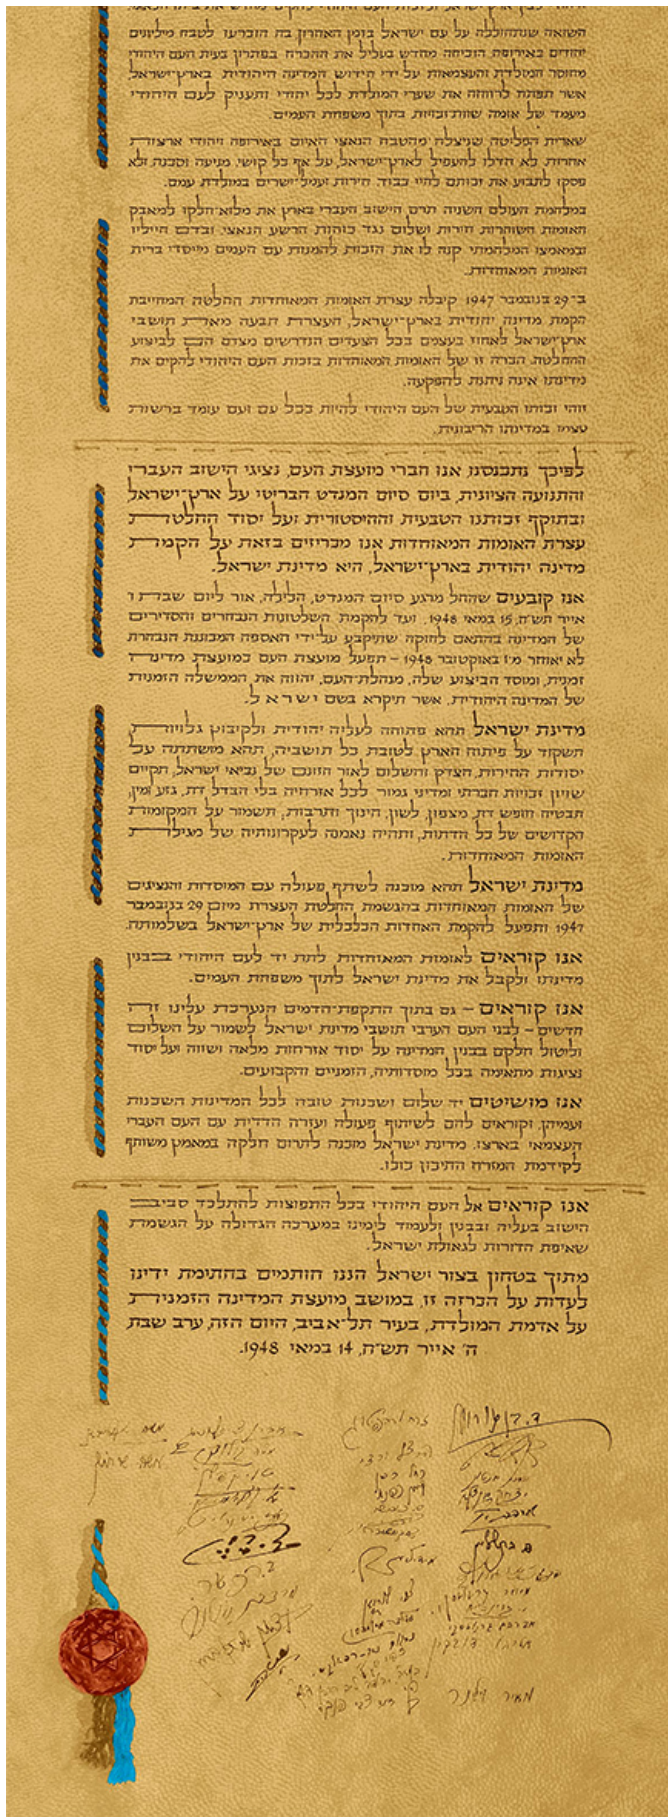 השואה שנתחוללה על עם ישראל בזמן האחרון בה הוכרעו לטבח מיליונים
יהודים באירופה הוכיחה מחדש בעליל את ההכרח בפתרון בעית העם היהודי
מחוסר המולדת והעצמאות על ידי חידוש המדינה היהודית בארץ־ישראל,
אשר תפתח לרווחה את שערי המולדת לכל יהודי ותעניק לעם היהודי
מעמד של אומה שוות־זכויות בתוך משפחת העמים.
שארית הפליטה שניצלה מהטבח הנאצי האיום באירופה ויהודי ארצות
אחרות לא חדלו להעפיל לארץ־ישראל, על אף כל קושי, מניעה וסכנה, ולא
פסקו לתבוע את זכותם לחיי כבוד, חירות ועמל־ישרים במולדת עמם.
במלחמת העולם השניה תרם הישוב העברי בארץ את מלוא־חלקו למאבק
האומות השוחרות חירות ושלום נגד כוחות הרשע הנאצי, ובדם חייליו
ובמאמצו המלחמתי קנה לו את הזכות להמנות עם העמים מייסדי ברית
האומות המאוחדות.
ב־29 בנובמבר 1947 קיבלה עצרת האומות המאוחדות החלטה המחייבת
הקמת מדינה יהודית בארץ־ישראל, העצרת תבעה מאת תושבי
ארץ־ישראל לאחוז בעצמם בכל הצעדים הנדרשים מצדם הם לביצוע
ההחלטה. הכרה זו של האומות המאוחדות בזכות העם היהודי להקים את
מדינתו אינה ניתנת להפקעה.
זוהי זכותו הטבעית של העם היהודי להיות ככל עם ועם עומד ברשות
עצמו במדינתו הריבונית.
לפיכך נתכנסנו, אנו חברי מועצת העם, נציגי הישוב העברי
והתנועה הציונית, ביום סיום המנדט הבריטי על ארץ־ישראל,
ובתוקף זכותנו הטבעית וההיסטורית ועל יסוד החלטת
עצרת האומות המאוחדות אנו מכריזים בזאת על הקמת
מדינה יהודית בארץ־ישראל, היא מדינת ישראל.
אנו קובעים שהחל מרגע סיום המנדט, הלילה, אור ליום שבת ו
אייר תש״ח, 15 במאי 1948, ועד להקמת השלטונות הנבחרים והסדירים
של המדינה בהתאם לחוקה שתיקבע על־ידי האספה המכוננת הנבחרת
לא יאוחר מ־1 באוקטובר 1948 – תפעל מועצת העם כמועצת מדינה
זמנית, ומוסד הביצוע שלה, מנהלת־העם, יהווה את הממשלה הזמנית
של המדינה היהודית, אשר תיקרא בשם ישראל.
מדינת ישראל תהא פתוחה לעליה יהודית ולקיבוץ גלויות,
תשקוד על פיתוח הארץ לטובת כל תושביה, תהא מושתתה על
יסודות החירות, הצדק והשלום לאור חזונם של נביאי ישראל, תקיים
שויון זכויות חברתי ומדיני גמור לכל אזרחיה בלי הבדל דת, גזע ומין,
תבטיח חופש דת, מצפון, לשון, חינוך ותרבות, תשמור על המקומות
הקדושים של כל הדתות, ותהיה נאמנה לעקרונותיה של מגילת
האומות המאוחדות.
מדינת ישראל תהא מוכנה לשתף פעולה עם המוסדות והנציגים
של האומות המאוחדות בהגשמת החלטת העצרת מיום 29 בנובמבר
1947 ותפעל להקמת האחדות הכלכלית של ארץ־ישראל בשלמותה.
אנו קוראים לאומות המאוחדות לתת יד לעם היהודי בבנין
מדינתו ולקבל את מדינת ישראל לתוך משפחת העמים.
אנו קוראים – גם בתוך התקפת־הדמים הנערכת עלינו זה
חדשים – לבני העם הערבי תושבי מדינת ישראל לשמור על השלום
וליטול חלקם בבנין המדינה על יסוד אזרחות מלאה ושווה ועל יסוד
נציגות מתאימה בכל מוסדותיה, הזמניים והקבועים.
אנו מושיטים יד שלום ושכנות טובה לכל המדינות השכנות
ועמיהן, וקוראים להם לשיתוף פעולה ועזרה הדדית עם העם העברי
העצמאי בארצו. מדינת ישראל מוכנה לתרום חלקה במאמץ משותף
לקידמת המזרח התיכון כולו.
אנו קוראים אל העם היהודי בכל התפוצות להתלכד סביב
הישוב בעליה ובבנין ולעמוד לימינו במערכה הגדולה על הגשמת
שאיפת הדורות לגאולת ישראל.
מתוך בטחון בצור ישראל הננו חותמים בחתימת ידינו
לעדות על הכרזה זו, במושב מועצת המדינה הזמנית,
על אדמת המולדת, בעיר תל־אביב, היום הזה, ערב שבת,
ה׳ אייר תש״ח, 14 במאי 1948.
ד. בן גוריון
מאיר וילנר